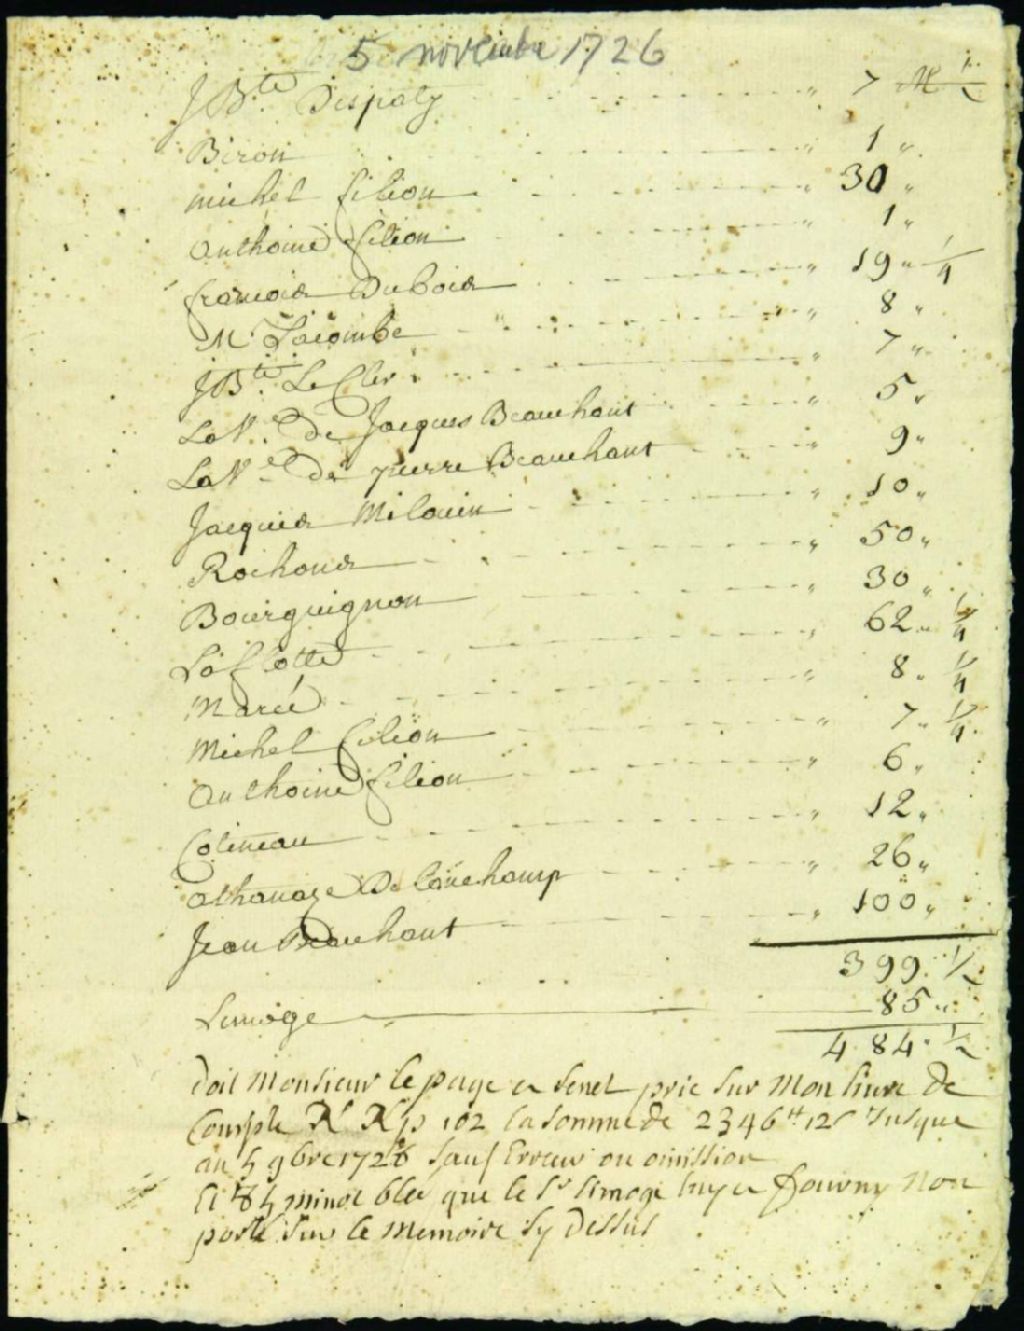 5 novembre 1726
J Bte Dispaty 7 M 1/2
Biron 1
michel filion 30
Anthoine filion 1
francois Dubois 19 1/4
Mr Lacombe 8
J Bte LeCler 7
La Ve de Jacques Beauchant 5
La Ve de pierre Beauchant 9
Jacques Milouin 10
Rochons 50
Bourguignon 30
Laflotte 62 1/4
Marié 8 1/4
Michel filion 7 1/4
Anthoine filion 6
Cotineau 12
athanaze De Lonchamp 26
Jean Beauchant 100
399 1/2
Limoge 85
484 1/2
doit Monsieur lepage a senet prie sur Mon livre de
Compte 102 La somme de 2346 tt 12 s Jusque
au 5 9bre 1726 sauf Erreur ou omission
Et 85 minot bled que le Sr limoge luy a fourny Non
porté sur le Memoire Cy dessus